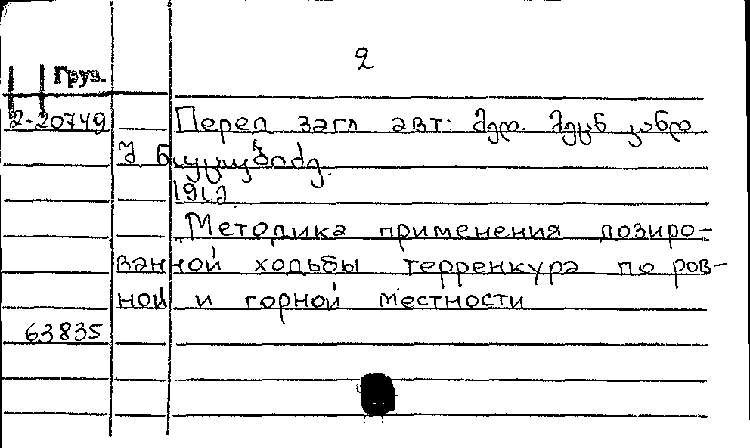 2
Груз.
2-20749 Перед загл авт: მედ. მეცნ კანდ

Методика применения дозиро-
ванной ходьбы терренкура по ров-
ной и горной местности
63835